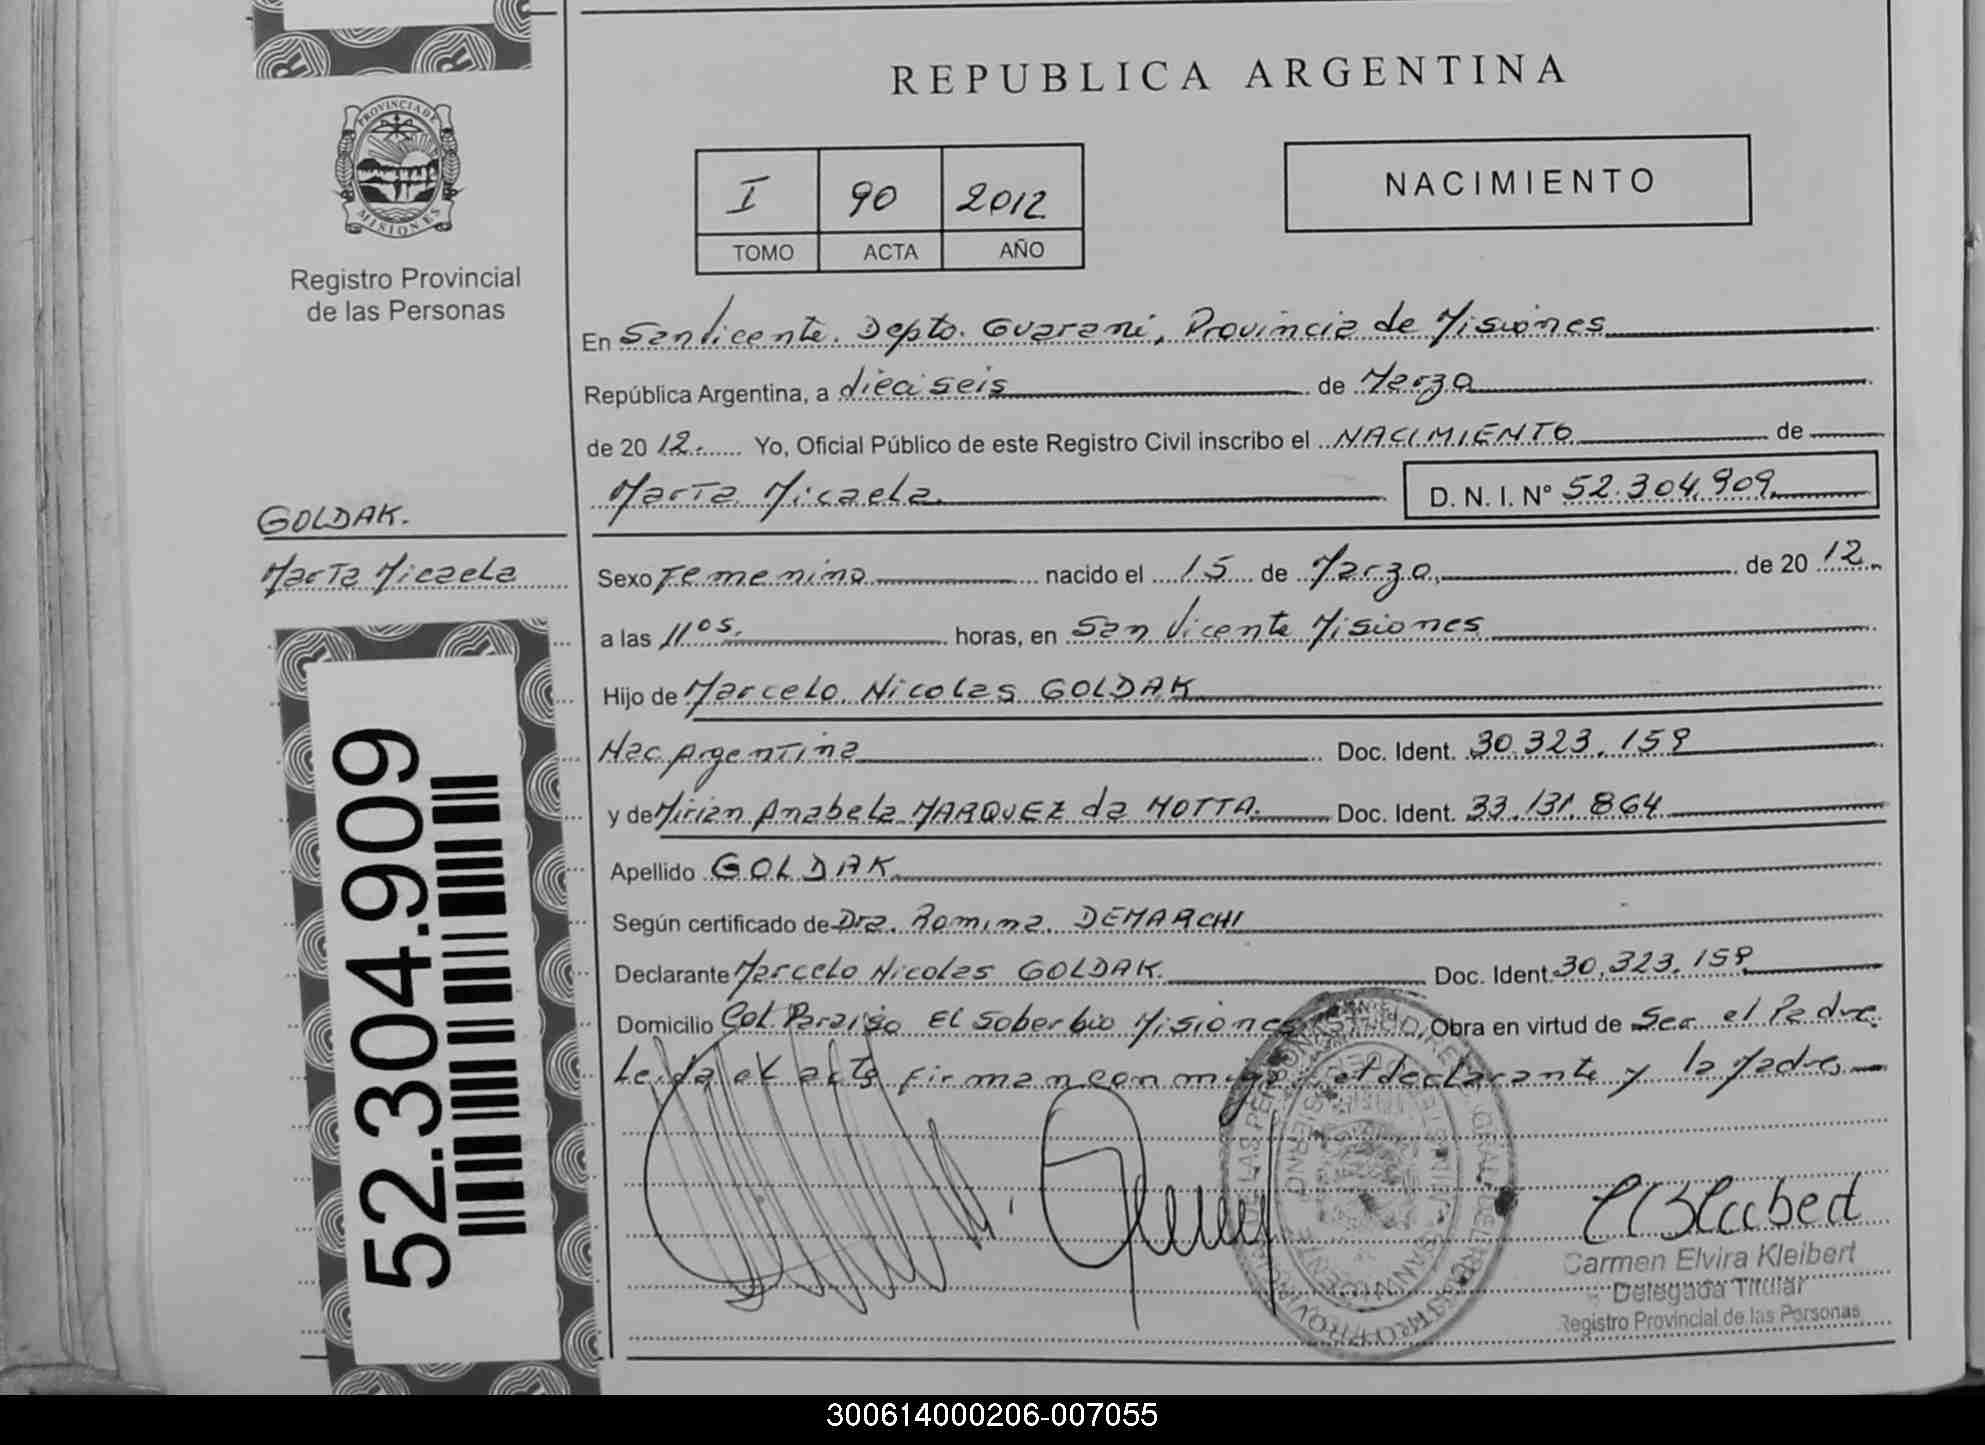 REPUBLICA ARGENTINA
PROVINCIA DE
MISIONES
Registro Provincial
de las Personas
I 90 2012
TOMO ACTA AÑO
NACIMIENTO
En San Vicente. Depto. Guaraní, Provincia de Misiones
República Argentina, a dieciseis de Marzo
de 2012. Yo, Oficial Público de este Registro Civil inscribo el NACIMIENTO de
Marta Micaela. D. N. I. N° 52.304.909
GOLDAK.
Marta Micaela
Sexo Femenino nacido el 15 de Marzo, de 2012.
a las 11 05. horas, en San Vicente Misiones
Hijo de Marcelo Nicolas GOLDAK
Nac Argentina Doc. Ident. 30.323.159
y de Mirian Anabela MARQUEZ da MOTTA. Doc. Ident. 33.131.864
Apellido GOLDAK
Según certificado de Dra. Romina DEMARCHI
Declarante Marcelo Nicolas GOLDAK. Doc. Ident. 30.323.159
Domicilio Col Paraiso El Soberbio Misiones Obra en virtud de Ser el Padre.
Leida el acta firman conmigo el declarante y la Madre
52.304.909
Carmen Elvira Kleibert
Delegada Titular
Registro Provincial de las Personas
300614000206-007055